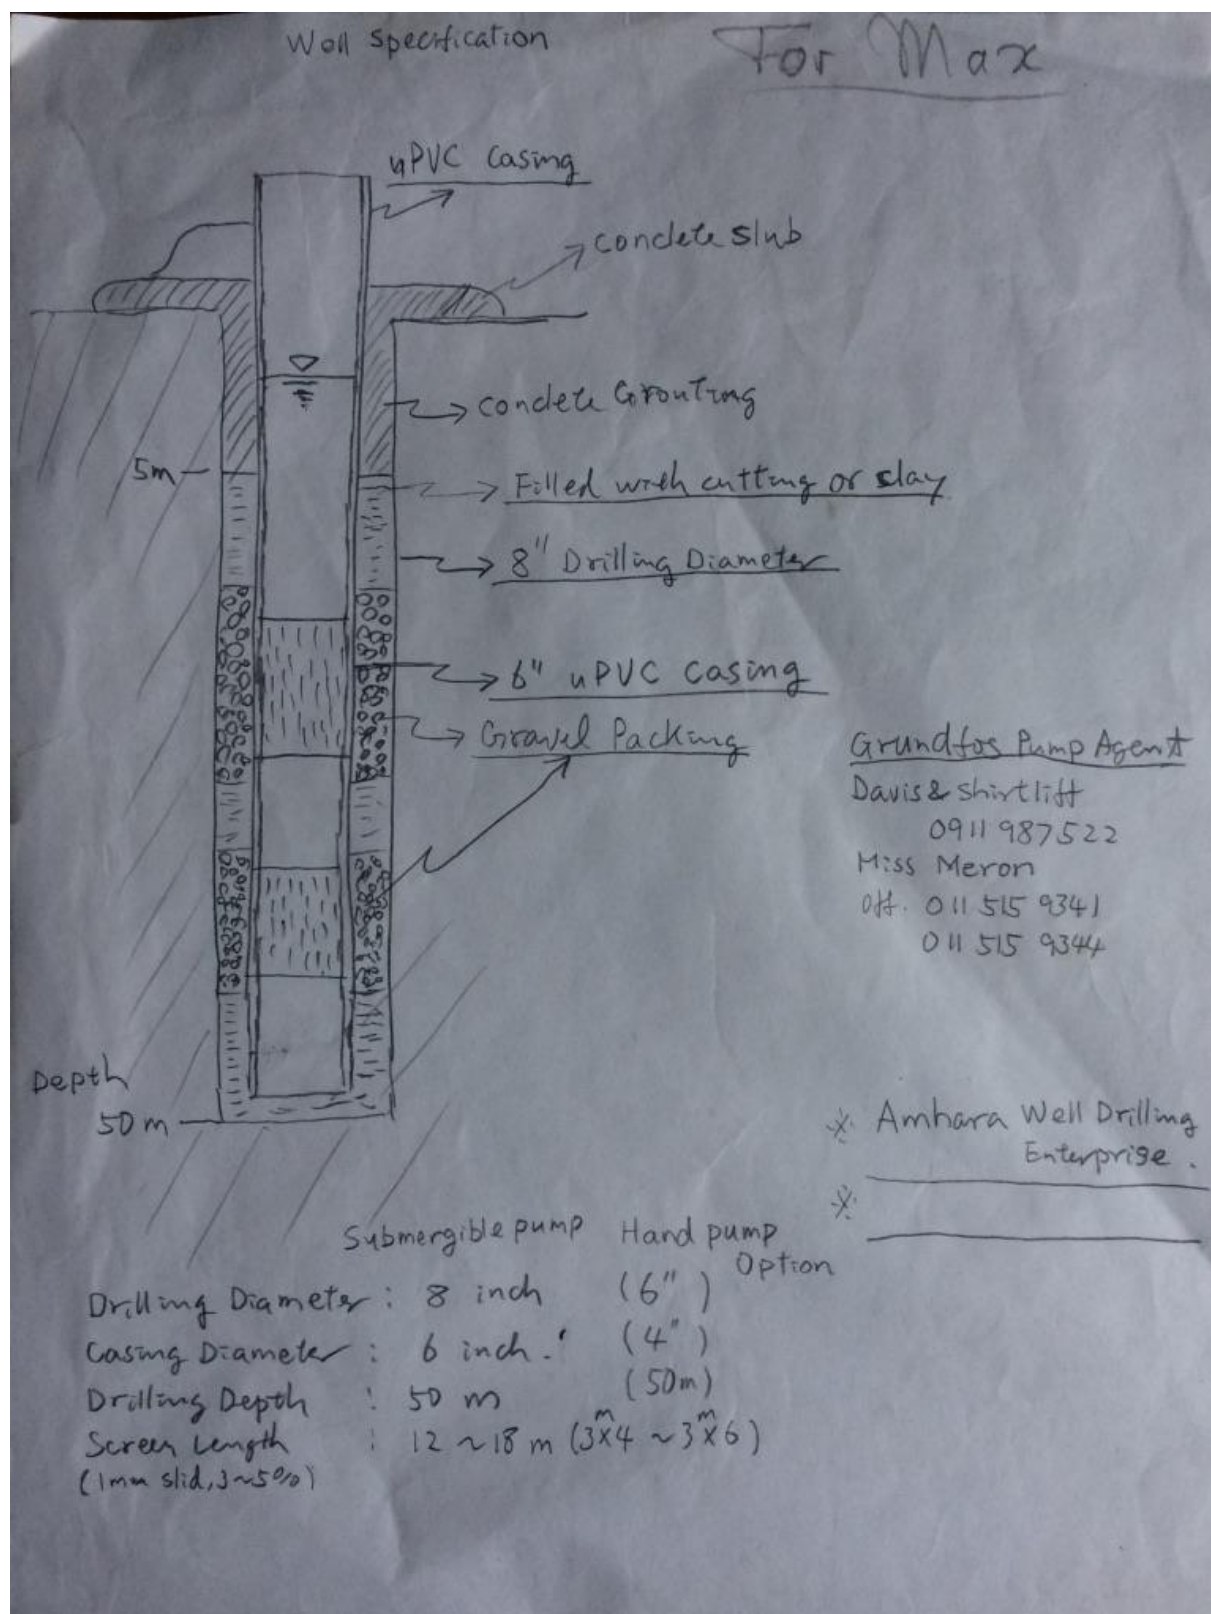 Well Specification
For Max
uPVC Casing
conclete slub
conclete Grouting
5m
Filled with cutting or slay
8" Drilling Diameter
6" uPVC Casing
Gravel Packing
Grundfos Pump Agent
Davis & Shirtliff
0911 987522
Miss Meron
Off. 011 515 9341
011 515 9344
Depth
50 m
※ Amhara Well Drilling
Enterprise.
※
Submergible pump Hand pump
Option
Drilling Diameter : 8 inch (6")
Casing Diameter : 6 inch. (4")
Drilling Depth : 50 m (50m)
Screen Length : 12 ~ 18 m (3m x 4 ~ 3m x 6)
(1mm slid, 3~5%)